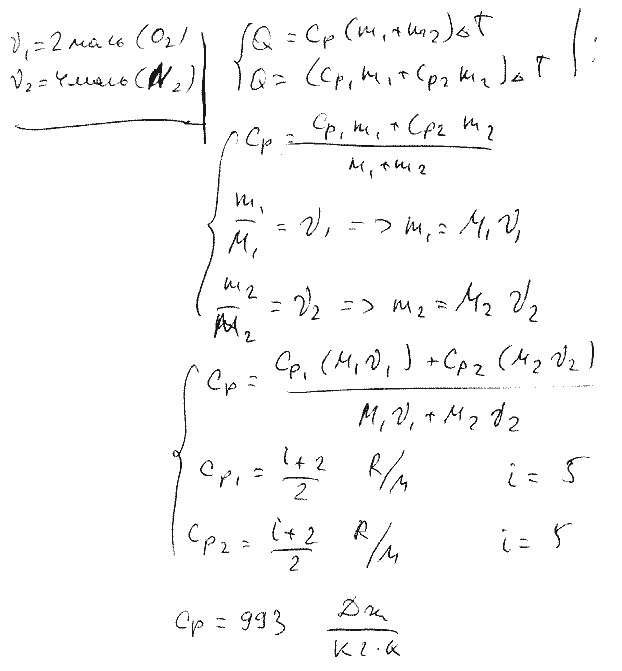 ν₁ = 2 моль (O₂)
ν₂ = 4 моль (N₂)
Q = Cp (m₁ + m₂) Δ T | :
Q = (Cp₁ m₁ + Cp₂ m₂) Δ T
Cp = (Cp₁ m₁ + Cp₂ m₂) / (m₁ + m₂)
m₁/M₁ = ν₁ => m₁ = M₁ ν₁
m₂/M₂ = ν₂ => m₂ = M₂ ν₂
Cp = (Cp₁ (M₁ν₁) + Cp₂ (M₂ν₂)) / (M₁ν₁ + M₂ν₂)
Cp₁ = (i+2)/2 R/M i = 5
Cp₂ = (i+2)/2 R/M i = 5
Cp = 993 Дж/(кг·К)